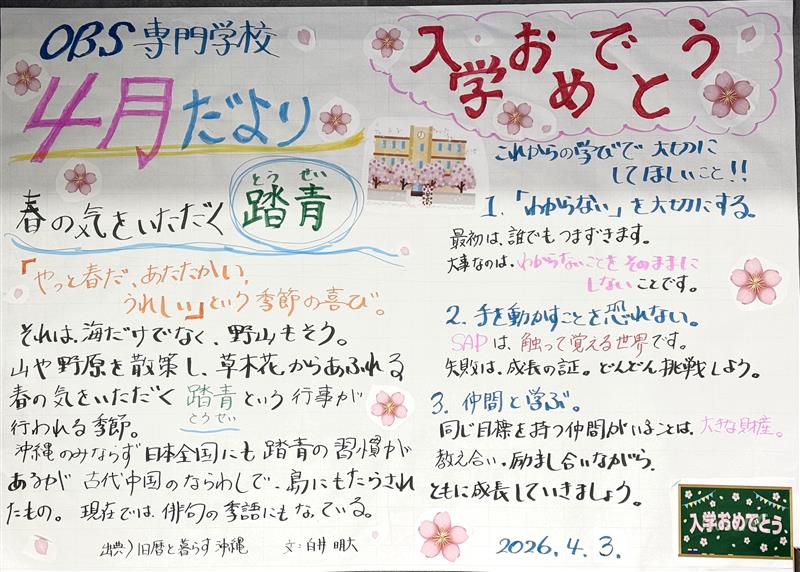 OBS専門学校
4月だより
春の気をいただく
とうせい
踏青
「やっと春だ、あたたかい、
うれしい」という季節の喜び。
それは、海だけでなく、野山もそう。
山や野原を散策し、草木花からあふれる
春の気をいただく 踏青という行事が
とうせい
行われる季節。
沖縄のみならず日本全国にも踏青の習慣が
あるが 古代中国のならわしで、島にもたらされ
たもの。現在では、俳句の季語にもなっている。
出典)旧暦と暮らす沖縄 文:白井明大
入学おめでとう
これからの学びで大切に
してほしいこと!!
1.「わからない」を大切にする。
最初は、誰でもつまずきます。
大事なのは、わからないことをそのままに
しないことです。
2.手を動かすことを恐れない。
SAPは、触って覚える世界です。
失敗は、成長の証。どんどん挑戦しよう。
3.仲間と学ぶ。
同じ目標を持つ仲間がいることは、大きな財産。
教え合い、励まし合いながら、
ともに成長していきましょう。
2026.4.3.
入学おめでとう